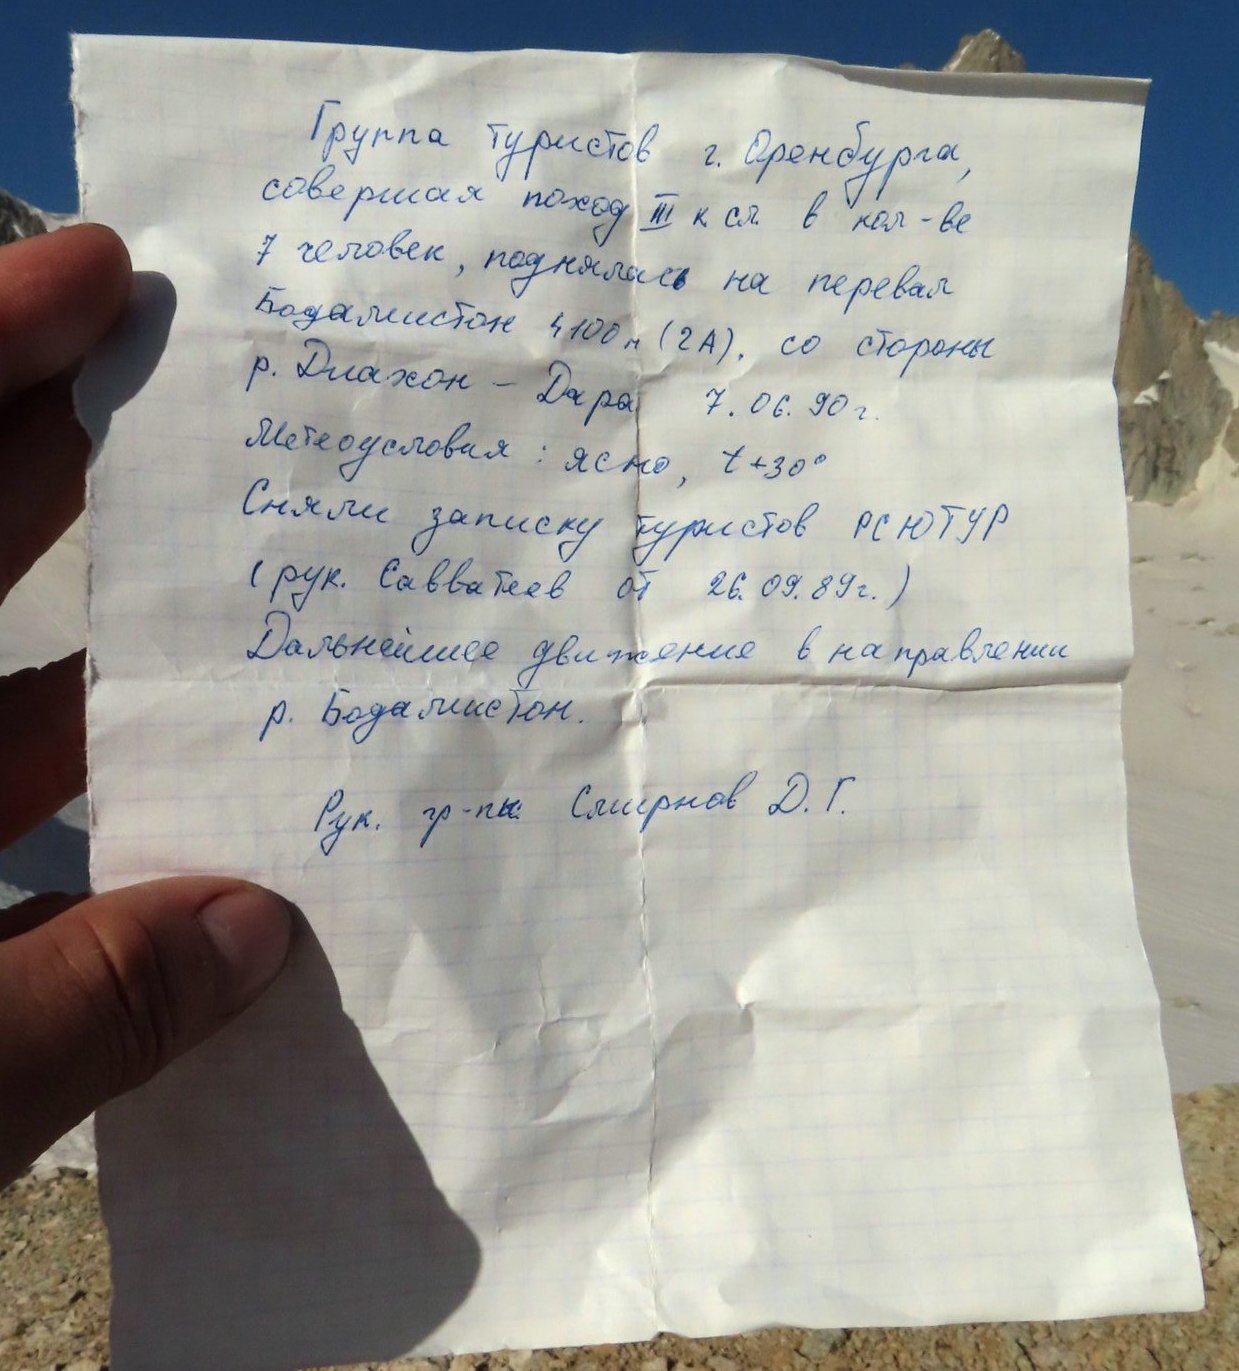 Группа туристов г. Оренбурга,
совершая поход III к сл. в кол-ве
7 человек, поднялась на перевал
Бодалиистон 4100 м (2А), со стороны
р. Диахон - Дара 7.06.90г.
Метеоусловия: ясно, t +30°
Сняли записку туристов РСЮТУР
(рук. Савватеев от 26.09.89г.)
Дальнейшее движение в направлении
р. Бодалиистон.
Рук. гр-пы Смирнов Д.Г.